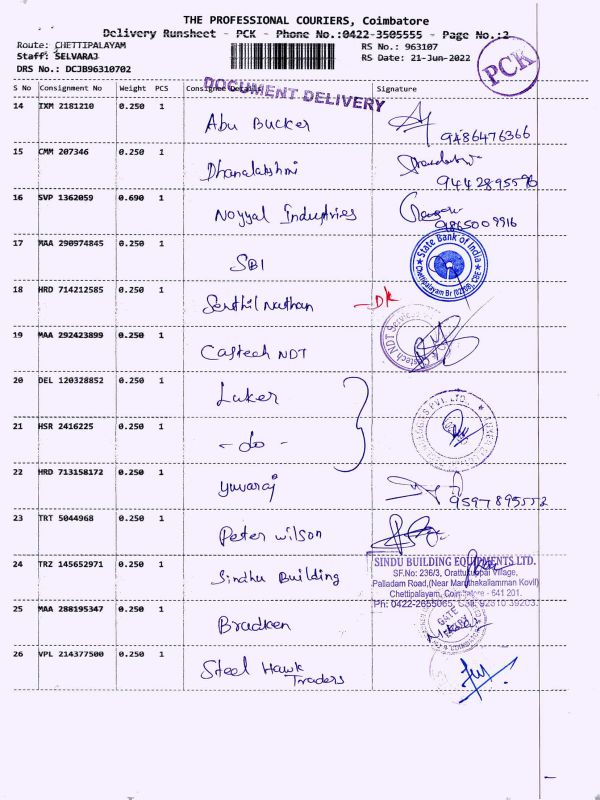 THE PROFESSIONAL COURIERS, Coimbatore
Delivery Runsheet - PCK - Phone No.:0422-3505555 - Page No.:2
Route: CHETTIPALAYAM
Staff: SELVARAJ
DRS No.: DCJB96310702
RS No.: 963107
RS Date: 21-Jun-2022
PCK
DOCUMENT DELIVERY
S No Consignment No Weight PCS Consignee Details Signature
14 IXM 2181210 0.250 1
Abu Bucker
9486476366
15 CMM 207346 0.250 1
Dhanalakshmi
9442895596
16 SVP 1362059 0.690 1
Noyyal Industries
9865009916
17 MAA 290974845 0.250 1
SBI
State Bank of India
Chettipalayam Br
18 HRD 714212585 0.250 1
Senthil Nathan
- DK
19 MAA 292423899 0.250 1
Castech NDT
20 DEL 120328852 0.250 1
Luker
21 HSR 2416225 0.250 1
- do -
22 HRD 713158172 0.250 1
Yuvaraj
9597895552
23 TRT 5044968 0.250 1
Peter Wilson
24 TRZ 145652971 0.250 1
Sindhu Building
SINDU BUILDING EQUIPMENTS LTD.
SF.No: 236/3, Orattukuppai Village,
Palladam Road,(Near Maruthakallamman Kovil)
Chettipalayam, Coimbatore - 641 201.
Ph: 0422-2655065, Cell: 92310 39203.
25 MAA 288195347 0.250 1
Bradken
GATE ENTRY
26 VPL 214377500 0.250 1
Steel Hawk
Traders